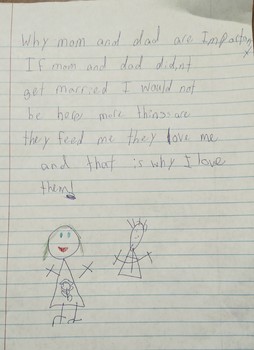 Why mom and dad are Importan
If mom and dad did,nt
get married I would not
be here more things are
they feed me they love me
and that is why I love
them!